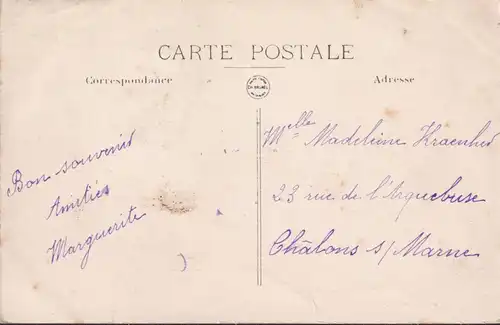 CARTE POSTALE
Correspondance
Adresse
Bon souvenir
Amitiés
Marguerite
Melle Madeleine
23 rue de l'Arquebuse
Châlons s/Marne